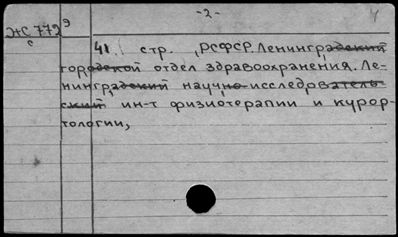 -2-
ЖС 772 э
с
41. стр. РСФСР. Ленинградский
городской отдел здравоохранения. Ле-
нинградский научно-исследователь-
ский ин-т физиотерапии и курор-
тологии,